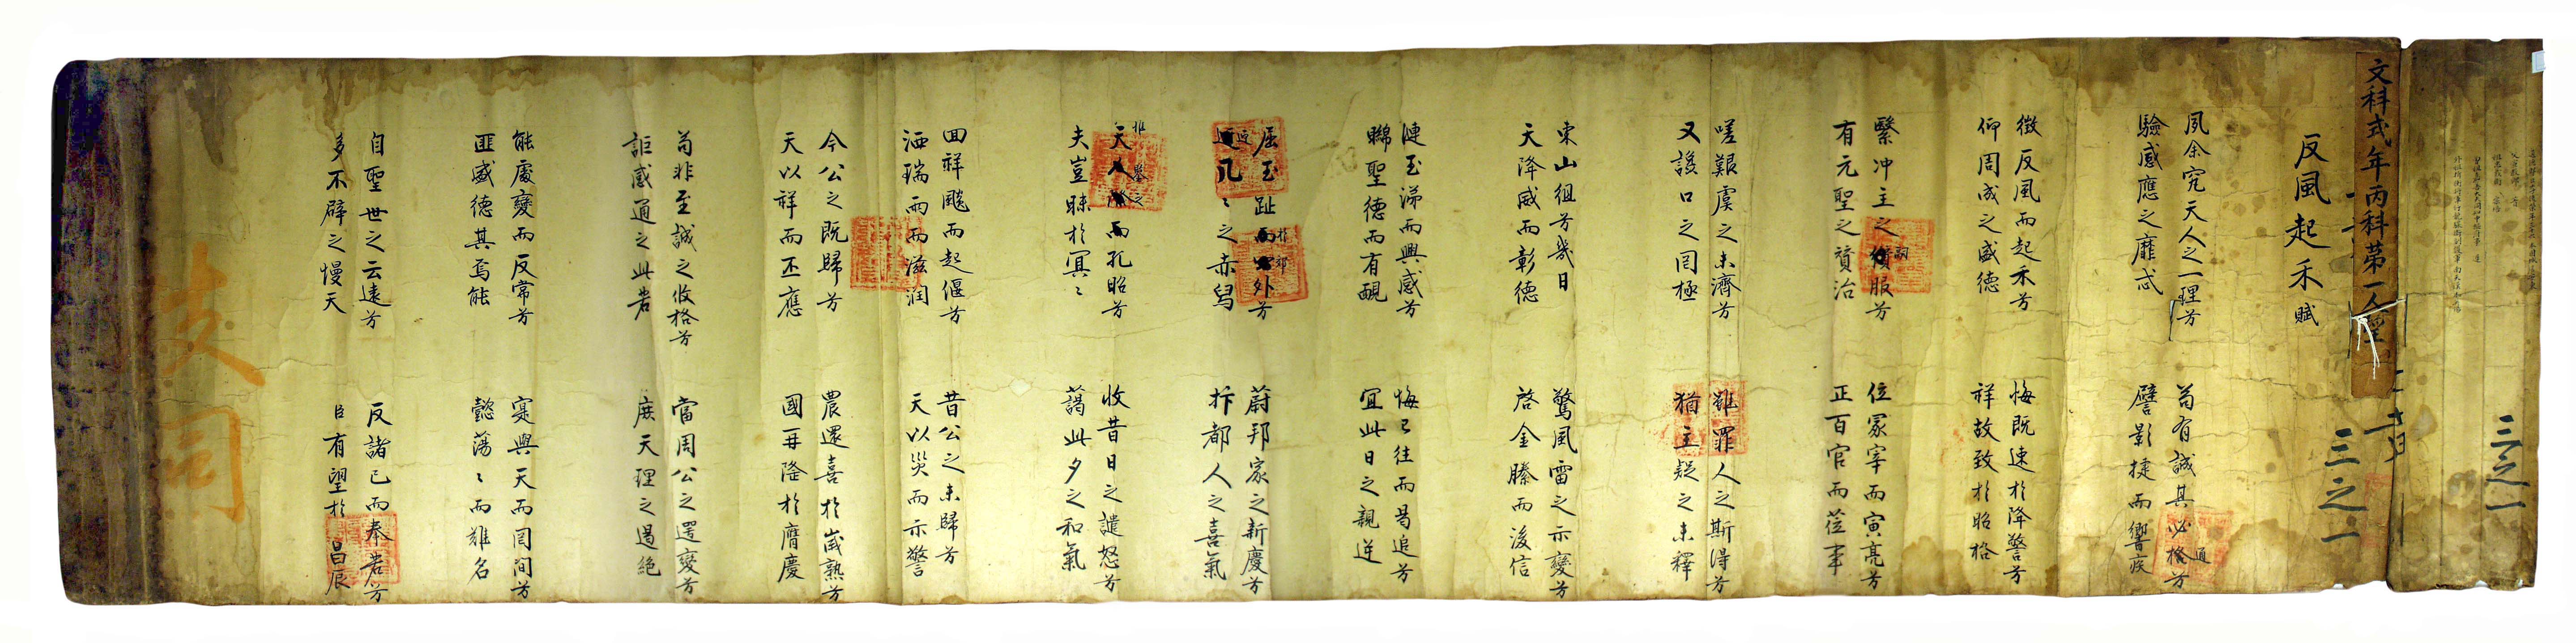 三之一
文科式年丙科第一人
二上
三之一
反風起禾賦
夙余究天人之一理兮 苟有誠其必格兮
驗感應之靡忒 譬影捷而響疾
徵反風而起禾兮 悔旣速於降警兮
仰周成之盛德 祥故致於昭格
繄冲主之訓服兮 位冢宰而寅亮兮
有元聖之贊治 正百官而莅事
嗟艱虞之未濟兮 雖罪人之斯得兮
又讒口之罔極 猶主疑之未釋
東山徂兮幾日 驚風雷之示變兮
天降威而彰德 啓金縢而後信
漣玉涕而興感兮 悔已往而曷追兮
睠聖德而有靦 宜此日之親迎
屈玉趾 外兮 蔚邦家之新慶兮
几〻之赤舃 抃都人之喜氣
惟 孔昭兮 收昔日之譴怒兮
夫豈昧於冥〻 藹此夕之和氣
回祥飈而起偃兮 昔公之未歸兮
洒瑞雨而滋潤 天以災而示警
今公之旣歸兮 農還喜於歲熟兮
天以祥而丕應 國再隆於膺慶
苟非至誠之攸格兮 當周公之還變兮
詎感通之此若 庶天理之遏絶
能處變而反常兮 寔與天而罔間兮
匪盛德其焉能 懿蕩〻而難名
自聖世之云遠兮 反諸已而奉若兮
多不辟之慢天 臣有望於 昌辰